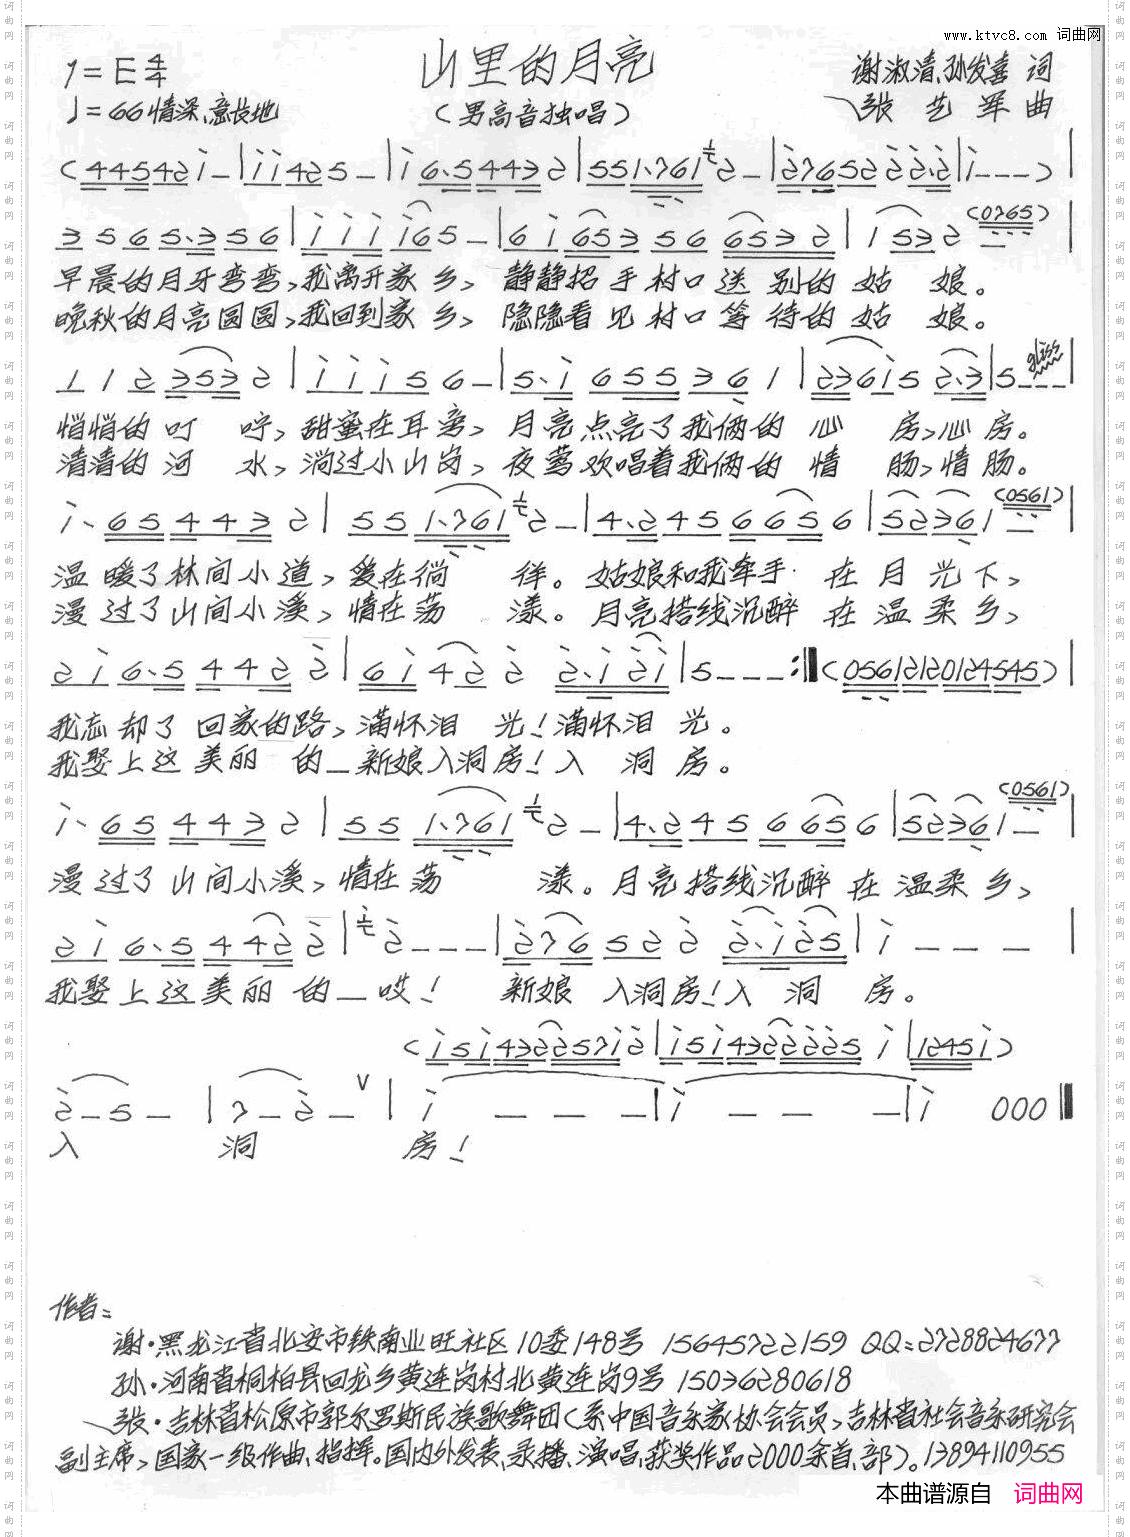 www.ktvc8.com 词曲网
山里的月亮
1=E 4/4
谢淑清、孙发喜 词
♩=66 情深、意长地
(男高音独唱)
张艺军 曲
(44542i-|ii425-|i6.54432|551.761 2-|276522 22.2|i---)|
3565.356|iii i65-|6i653 56 6532|1532 (0765)|
早晨的月牙弯弯,我离开家乡、静静招手村口送别的姑娘。
晚秋的月亮圆圆,我回到家乡、隐隐看见村口等待的姑娘。
112 3532|iii56-|5.i 6553 61|236i5 2.3|5--- gliss|
悄悄的叮咛,甜蜜在耳旁、月亮点亮了我俩的心房,心房。
清清的河水,淌过小山岗、夜莺欢唱着我俩的情肠,情肠。
i.65 4432|551.761 2-|4.245 66656|52361 (0561)|
温暖了林间小道,爱在徜徉。姑娘和我牵手在月光下,
漫过了山间小溪,情在荡漾。月亮搭线沉醉在温柔乡,
2i6.5 4422|6i422 2.i2i|5---:‖(05612120124545)|
我忘却了回家的路,满怀泪光!满怀泪光。
我娶上这美丽的_新娘入洞房!入洞房。
i.65 4432|551.761 2-|4.245 66656|52361 (0561)|
漫过了山间小溪,情在荡漾。月亮搭线沉醉在温柔乡,
2i6.5 4422|2---|276522 2.i25|i---|
我娶上这美丽的_哎!新娘入洞房!入洞房。
(i5i432257i2|i5i4322225i|1245i)
2-5-|7-2-∨|i---|i---|i000‖
入洞房!
作者:
谢·黑龙江省北安市铁南业旺社区10委148号 15645722159 QQ:2728824677
孙·河南省桐柏县回龙乡黄连岗村北黄连岗9号 15036280618
张·吉林省松原市郭尔罗斯民族歌舞团(系中国音乐家协会会员,吉林省社会音乐研究会
副主席,国家一级作曲、指挥。国内外发表、录播、演唱、获奖作品2000余首、部)。13894110955
本曲谱源自 词曲网